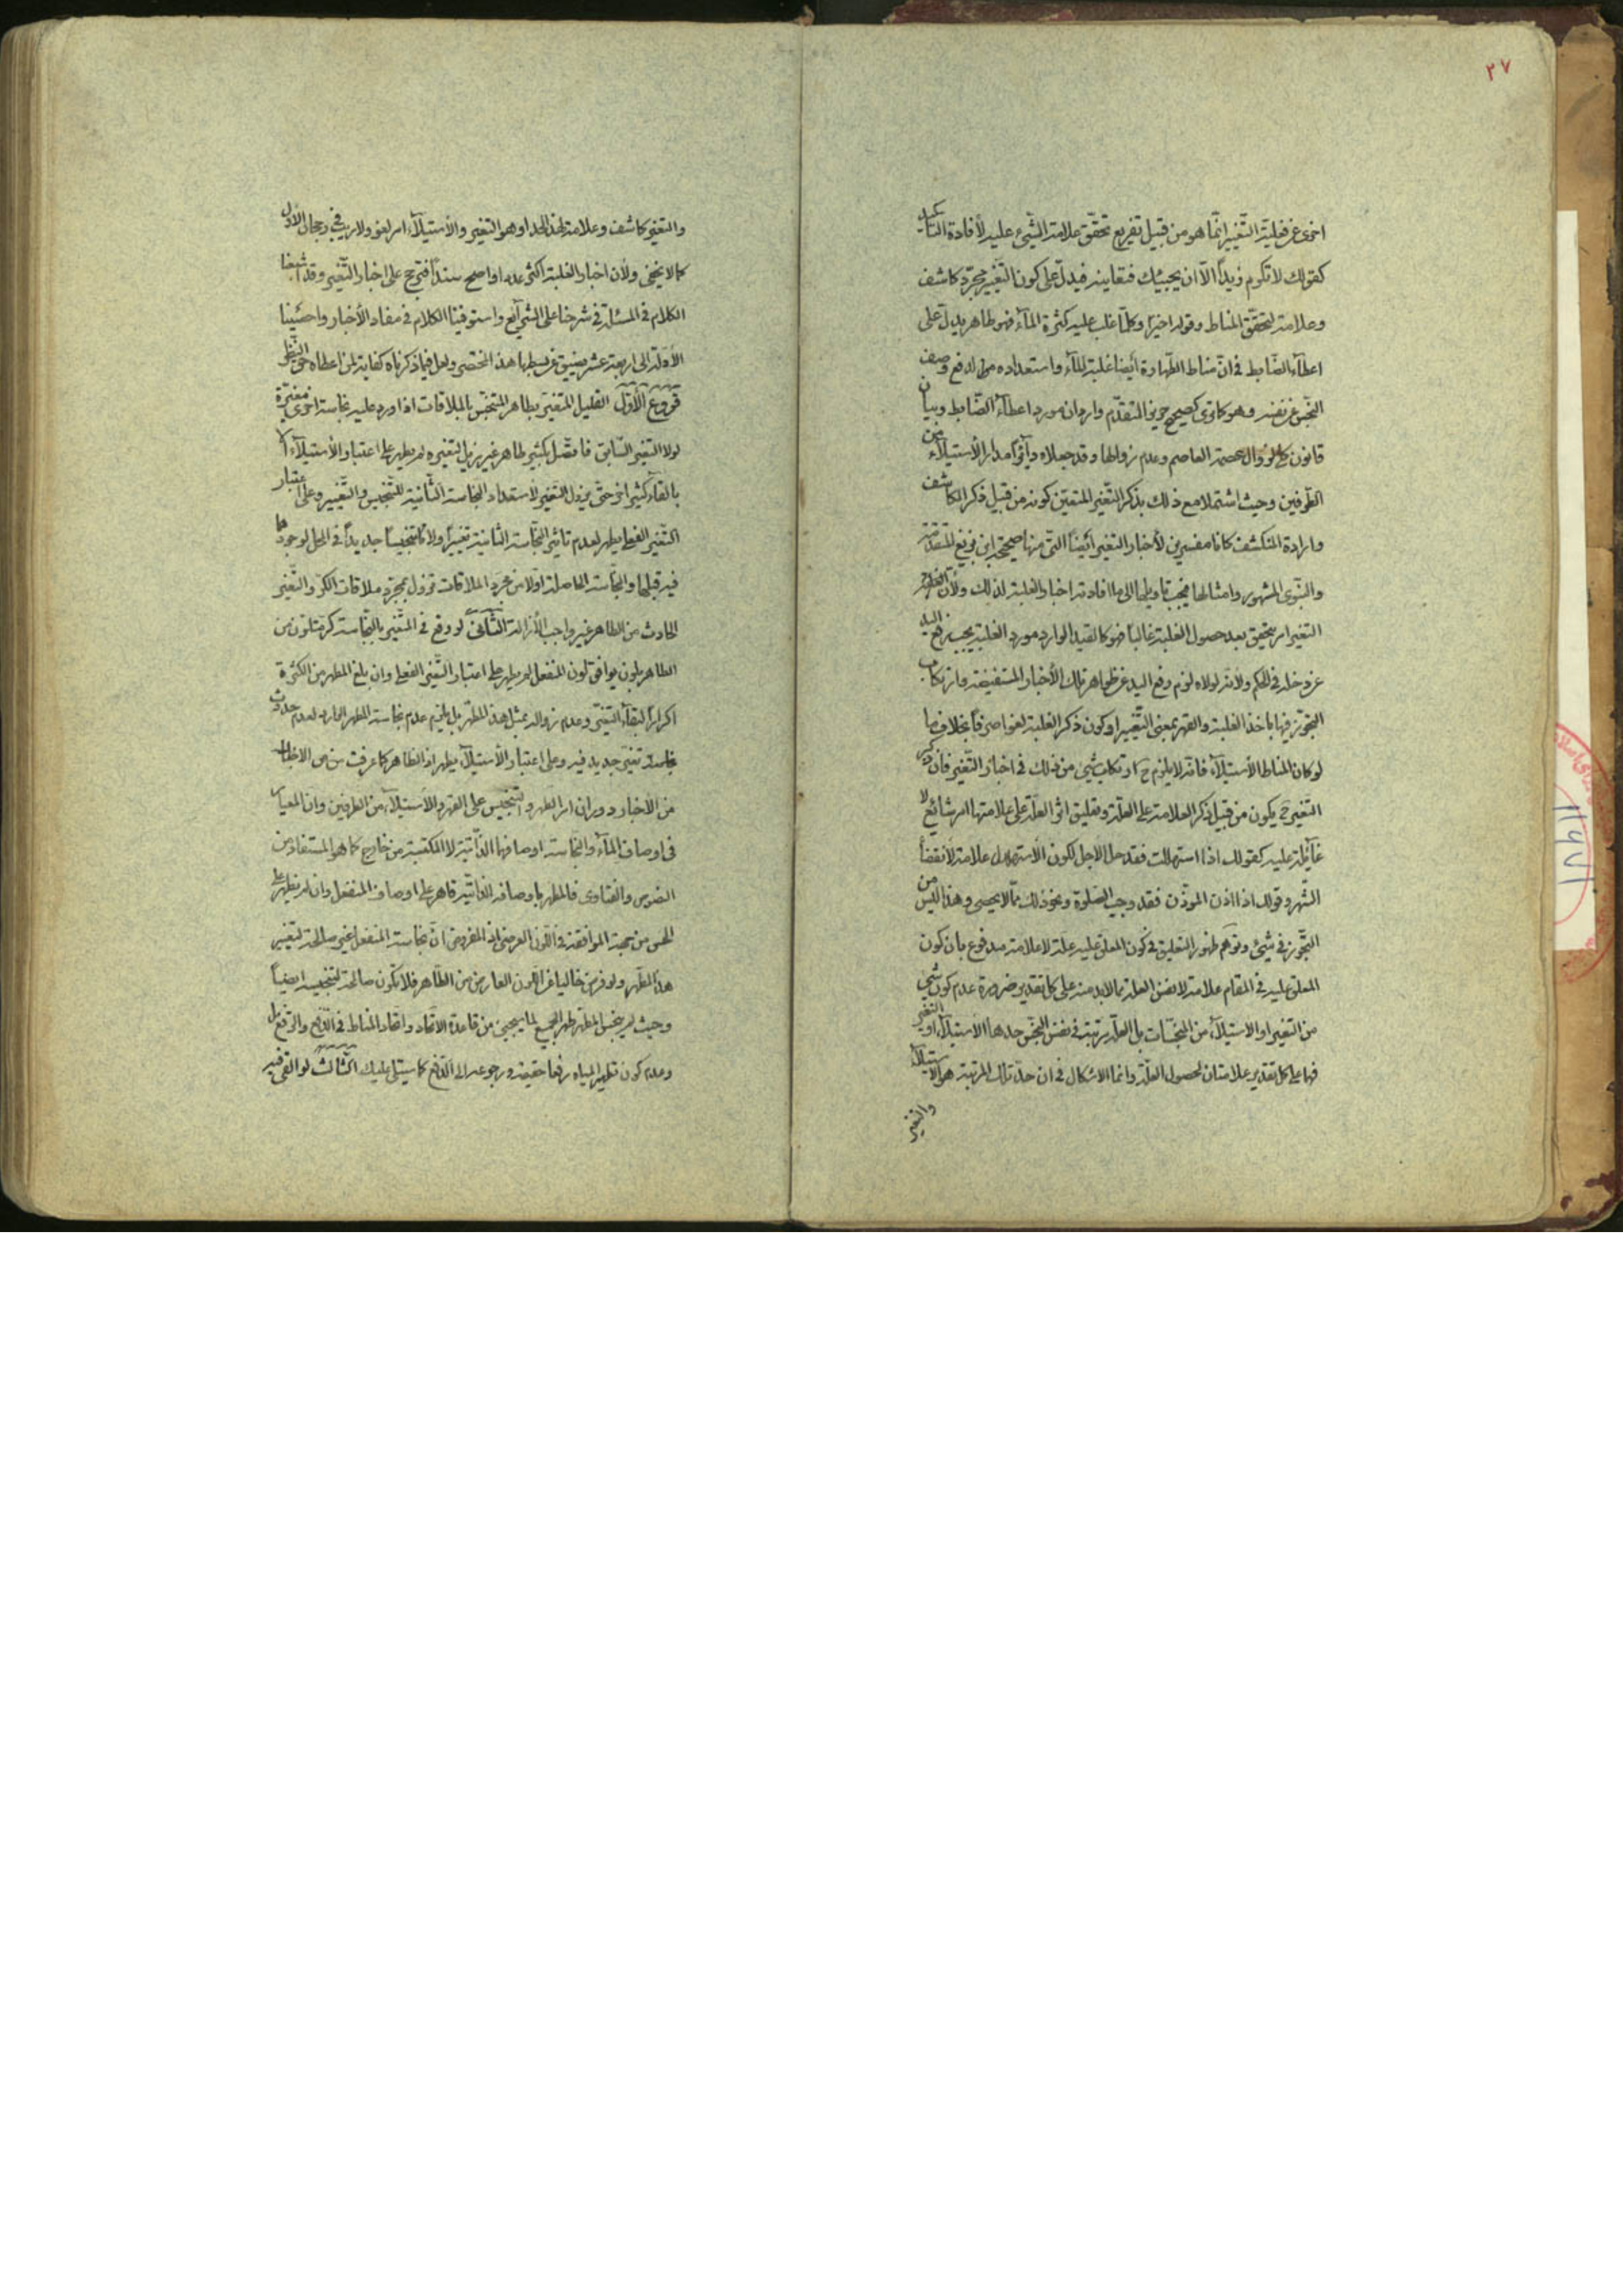 ٢٧
اخرى عن فعلية التغيير انما هو من قبيل تفريع تحقق علامة الشيء عليه لأفادة التأكيد
كقولك لا تكرم زيداً الا ان يجيئك فتعاينه فيدل على كون التغيير مجرد كاشف
وعلامة لتحقق المناط وقوله اخيرا وكلما غلب عليه كثرة الماء فهو طاهر يدل على
اعطاء الضابط في ان مناط الطهارة أيضا غلبة الماء واستعداده لدفع وصف
النجس عن نفسه وهو كما ترى كصحيح حريز المتقدم واردان مورد اعطاء الضابط وبيان
قانون لزوال عصمة العاصم وعدم زوالها وقد جعلاه مدار الأستيلاء من
الطرفين وحيث اشتملا مع ذلك بذكر التغير المتعين كونه من قبيل ذكر الكاشف
وارادة المنكشف كانا مفسرين لأخبار التغير أيضاً التي منها صحيحة ابن بزيع المتقدمة
والنبوي المشهور وامثالها فيجب تأويلها الى ما افادته اخبار الغلبة لذلك ولأن
التغير امر يتحقق بعد حصول الغلبة غالبا فهو كالقيد الوارد مورد الغلبة يجب رفع اليد
عن دخله في الحكم ولأنه لولاه لزم رفع اليد عن ظواهر تلك الأخبار المستفيضة وارتكاب
التجوز فيها باخذ الغلبة والقهر بمعنى التغيير او كون ذكر الغلبة لغوا صرفاً بخلاف ما
لو كان المناط الأستيلاء فانه لا يلزم ح ارتكاب شيء من ذلك في اخبار التغير فان ذكر
التغير ح يكون من قبيل ذكر العلامة على العلة وتعليق اثر العلة على علامتها امر شائع لا
غائلة عليه كقولك اذا استهللت فقد حل الاجل لكون الأستهلال علامة لأنقضاء
الشهر وقولك اذا اذن الموذن فقد وجب الصلوة ونحو ذلك مما لا يحصى وهذا ليس من
التجوز في شيء وتوهم ظهور التعليق في كون المعلق عليه علة لا علامة مدفوع بان كون
المعلق عليه في المقام علامة لا نفس العلة مما لابد منه على كل تقدير ضرورة عدم كون شيء
من التغير او الاستيلاء من المنجسات بل العلة مرتبة في نفس النجس حدها الأستيلاء او التغير
فهما على كل تقدير علامتان لحصول العلة وانما الاشكال في ان حد تلك المرتبة هو الاستيلاء
والتغير
والتغير كاشف وعلامة لهذا الحد او هو التغير والأستيلاء امر لغو ولا ريب في رجحان الأول
كما لا يخفى ولأن اخبار الغلبة اكثر عددا واصح سنداً فترجح على اخبار التغير وقد اشبعنا
الكلام في المسئلة في شرحنا على الشرائع واستوفينا الكلام في مفاد الأخبار واحصينا
الأدلة الى اربعة عشر يضيق عن بسطها هذا المختصر ولعل فيما ذكرناه كفاية لمن اعطاه حق النظر
فروع الأول القليل المتغير بطاهر المتنجس بالملاقات اذا ورد عليه نجاسة اخرى مغيرة
لولا التغير السابق فاتصل بكثير طاهر غير مزيل لتغيره لم يطهر على اعتبار الأستيلاء الا
بالقاء كثير اخر حتى يزول التغير لاستعداد النجاسة الثانية للتنجيس والتغيير وعلى اعتبار
التغير الفعلي يطهر لعدم تاثير النجاسة الثانية تغييراً ولا تنجيسا جديداً في المحل لوجودها
فيه قبلها والنجاسة الحاصلة اولا من مجرد الملاقات تزول بمجرد ملاقات الكر والتغير
الحادث من الطاهر غير واجب الأزالة الثاني لو وقع في المتغير بالنجاسة كر متلون من
الطاهر بلون يوافق لون المنفعل لم يطهر على اعتبار التغير الفعلي وان بلغ المطهر من الكثرة
اكرارا لبقاء التغير وعدم زواله بمثل هذا المطهر بل يلزم عدم نجاسة المطهر الوارد لعدم حدوث
تغير جديد فيه وعلى اعتبار الأستيلاء يطهر اذ الظاهر كما عرفت من
من الأخبار دوران امر الطهر والتنجيس على القهر والأستيلاء من الطرفين وان المعيار
في اوصاف الماء والنجاسة اوصافها الذاتية لا المكتسبة من خارج كما هو المستفاد من
النصوص والفتاوى فالمطهر باوصافه الذاتية قاهر على اوصاف المنفعل وان لم يظهر على
الحس من جهة الموافقة في اللون العرضي اذ المفروض ان نجاسة المنفعل غير صالحة لتغيير
هذا المطهر ولو فرض خاليا عن اللون العارض من الطاهر فلا تكون صالحة لتنجيسه ايضاً
وحيث لم ينجس المطهر طهر الجميع لما سيجيء من قاعدة الأتحاد واتحاد المناط في الدفع والرفع بل
وعدم كون تطهير المياه رفعا حقيقة ورجوعه الى الدفع كما سيتلى عليك الثالث لو القي فيه